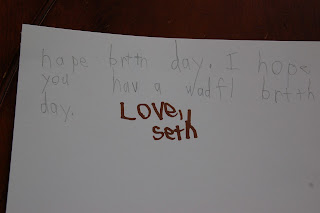 hape brth day. I hope
you hav a wadfl brtth
day.
LOVE,
seth